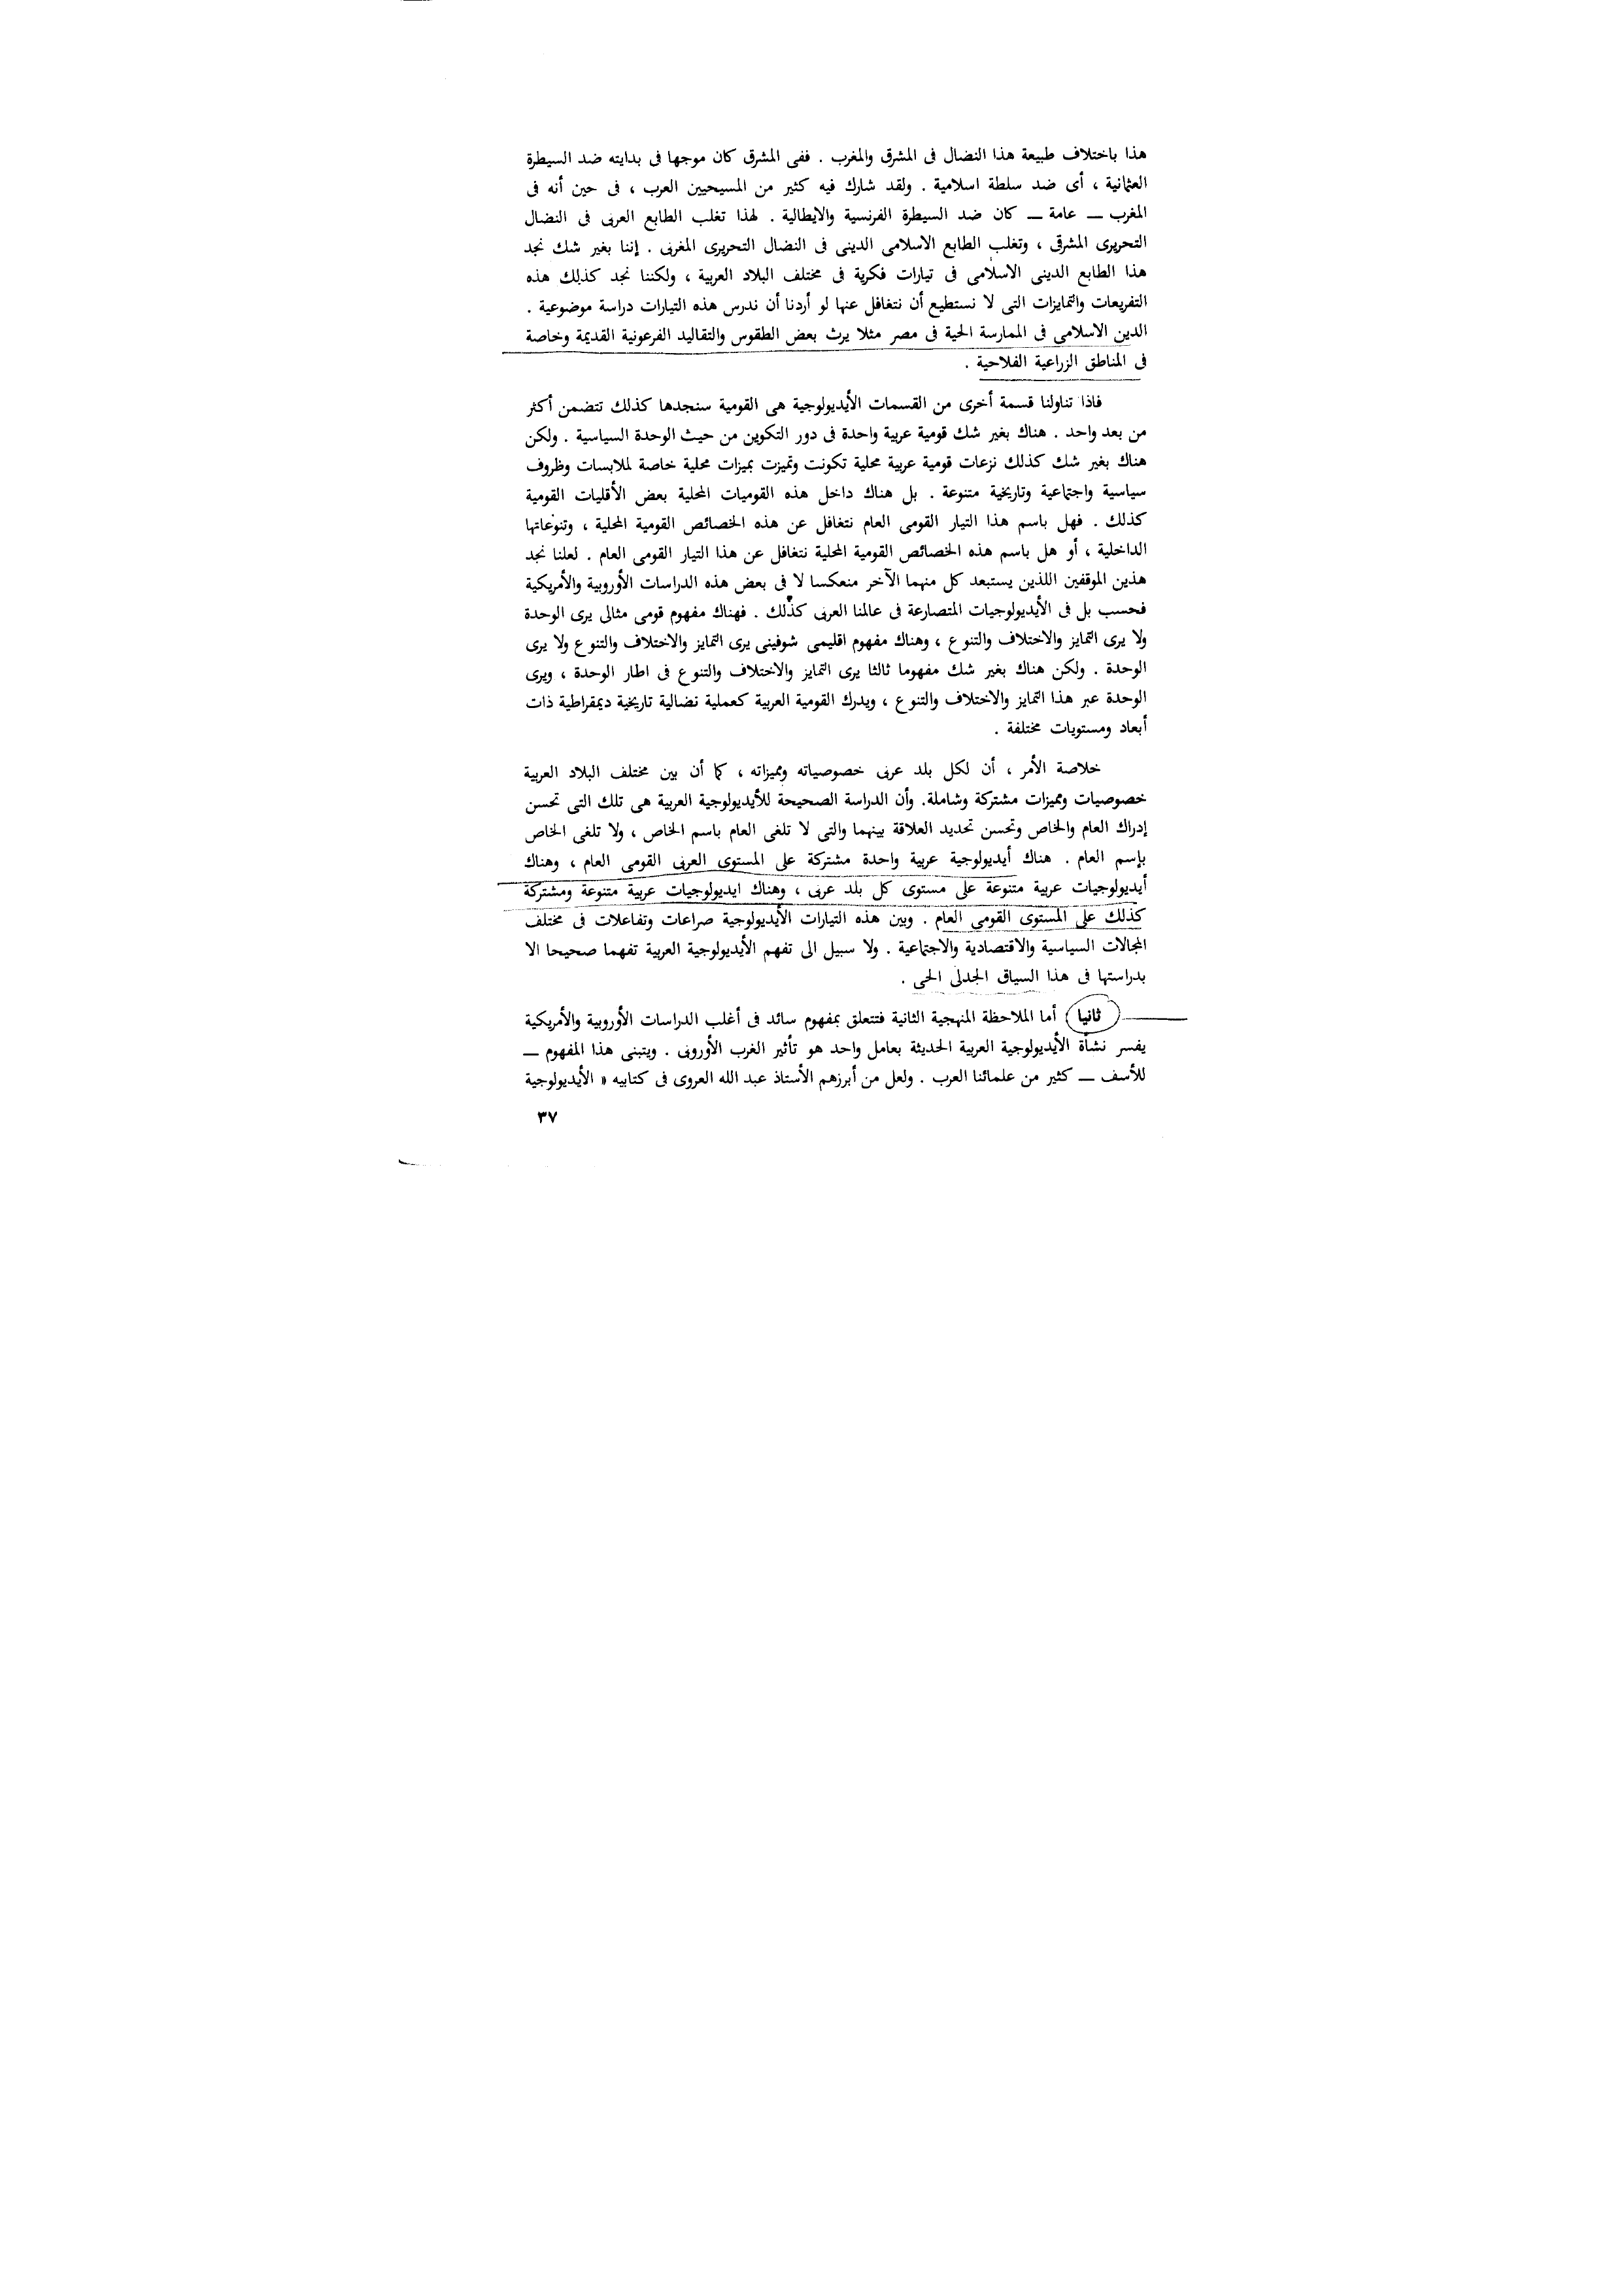 هذا باختلاف طبيعة هذا النضال فى المشرق والمغرب . ففى المشرق كان موجها فى بدايته ضد السيطرة
العثمانية ، أى ضد سلطة اسلامية . ولقد شارك فيه كثير من المسيحيين العرب ، فى حين أنه فى
المغرب — عامة — كان ضد السيطرة الفرنسية والايطالية . لهذا تغلب الطابع العربى فى النضال
التحريرى المشرقى ، وتغلب الطابع الاسلامى الدينى فى النضال التحريرى المغربى . إننا بغير شك نجد
هذا الطابع الدينى الاسلامى فى تيارات فكرية فى مختلف البلاد العربية ، ولكننا نجد كذلك هذه
التفريعات والتمايزات التى لا نستطيع أن نتغافل عنها لو أردنا أن ندرس هذه التيارات دراسة موضوعية .
الدين الاسلامى فى الممارسة الحية فى مصر مثلا يرث بعض الطقوس والتقاليد الفرعونية القديمة وخاصة
فى المناطق الزراعية الفلاحية .
فاذا تناولنا قسمة أخرى من القسمات الأيديولوجية هى القومية سنجدها كذلك تتضمن أكثر
من بعد واحد . هناك بغير شك قومية عربية واحدة فى دور التكوين من حيث الوحدة السياسية . ولكن
هناك بغير شك كذلك نزعات قومية عربية محلية تكونت وتميزت بميزات محلية خاصة لملابسات وظروف
سياسية واجتماعية وتاريخية متنوعة . بل هناك داخل هذه القوميات المحلية بعض الأقليات القومية
كذلك . فهل باسم هذا التيار القومى العام نتغافل عن هذه الخصائص القومية المحلية ، وتنوعاتها
الداخلية ، أو هل باسم هذه الخصائص القومية المحلية نتغافل عن هذا التيار القومى العام . لعلنا نجد
هذين الموقفين اللذين يستبعد كل منهما الآخر منعكسا لا فى بعض هذه الدراسات الأوروبية والأمريكية
فحسب بل فى الأيديولوجيات المتصارعة فى عالمنا العربى كذلك . فهناك مفهوم قومى مثالى يرى الوحدة
ولا يرى التمايز والاختلاف والتنوع ، وهناك مفهوم اقليمى شوفينى يرى التمايز والاختلاف والتنوع ولا يرى
الوحدة . ولكن هناك بغير شك مفهوما ثالثا يرى التمايز والاختلاف والتنوع فى اطار الوحدة ، ويرى
الوحدة عبر هذا التمايز والاختلاف والتنوع ، ويدرك القومية العربية كعملية نضالية تاريخية ديمقراطية ذات
أبعاد ومستويات مختلفة .
خلاصة الأمر ، أن لكل بلد عربى خصوصياته ومميزاته ، كما أن بين مختلف البلاد العربية
خصوصيات ومميزات مشتركة وشاملة. وأن الدراسة الصحيحة للأيديولوجية العربية هى تلك التى تحسن
إدراك العام والخاص وتحسن تحديد العلاقة بينهما والتى لا تلغى العام باسم الخاص ، ولا تلغى الخاص
بإسم العام . هناك أيديولوجية عربية واحدة مشتركة على المستوى العربى القومى العام ، وهناك
أيديولوجيات عربية متنوعة على مستوى كل بلد عربى ، وهناك ايديولوجيات عربية متنوعة ومشتركة
كذلك على المستوى القومى العام . وبين هذه التيارات الأيديولوجية صراعات وتفاعلات فى مختلف
المجالات السياسية والاقتصادية والاجتماعية . ولا سبيل الى تفهم الأيديولوجية العربية تفهما صحيحا الا
بدراستها فى هذا السياق الجدلى الحى .
ثانيا أما الملاحظة المنهجية الثانية فتتعلق بمفهوم سائد فى أغلب الدراسات الأوروبية والأمريكية
يفسر نشأة الأيديولوجية العربية الحديثة بعامل واحد هو تأثير الغرب الأوروبى . ويتبنى هذا المفهوم —
للأسف — كثير من علمائنا العرب . ولعل من أبرزهم الأستاذ عبد الله العروى فى كتابيه « الأيديولوجية
٣٧